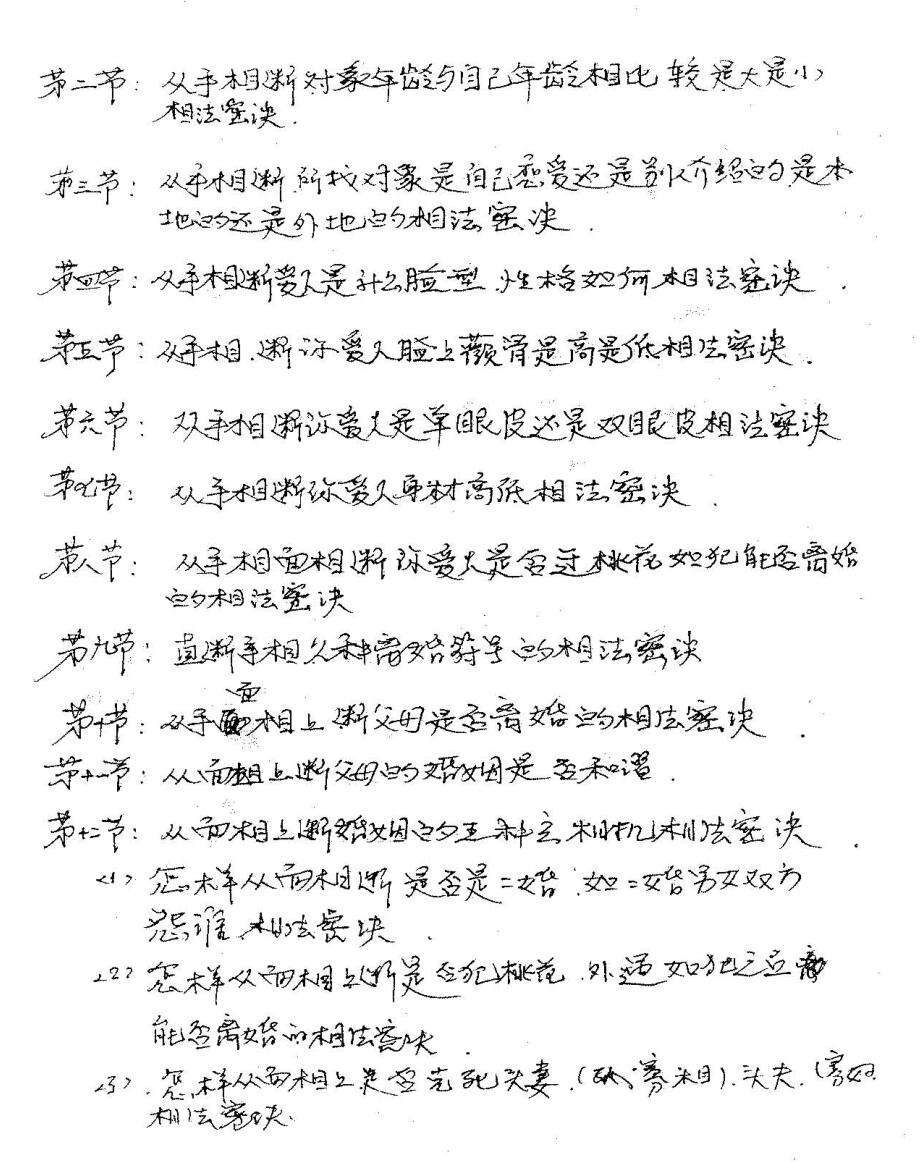 第二节：从手相断对象年龄与自己年龄相比较是大是小
相法密诀．
第三节：从手相断所找对象是自己恋爱还是别人介绍的是本
地的还是外地的相法密诀．
第四节：从手相断爱人是什么脸型．性格如何相法密诀．
第五节：从手相．断你爱人脸上颧骨是高是低相法密诀．
第六节：从手相断你爱人是单眼皮还是双眼皮相法密诀
第七节：从手相断你爱人身材高低相法密诀．
第八节：从手相面相断你爱人是否走桃花如犯能否离婚
的相法密诀
第九节：直断手相几种离婚符号的相法密诀
第十节：从手面相上断父母是否离婚的相法密诀．
第十一节：从面相上断父母的婚姻是否和谐．
第十二节：从面相上断婚姻的五种玄机相法密诀．
<1>怎样从面相断是否是二婚．如二婚男女双方
怨谁．相法密诀．
<2>怎样从面相上断是否犯桃花．外遇如犯
能否离婚的相法密诀．
<3>．怎样从面相上是否克死夫妻．寡相)．夫．(寡妇
相法密诀．